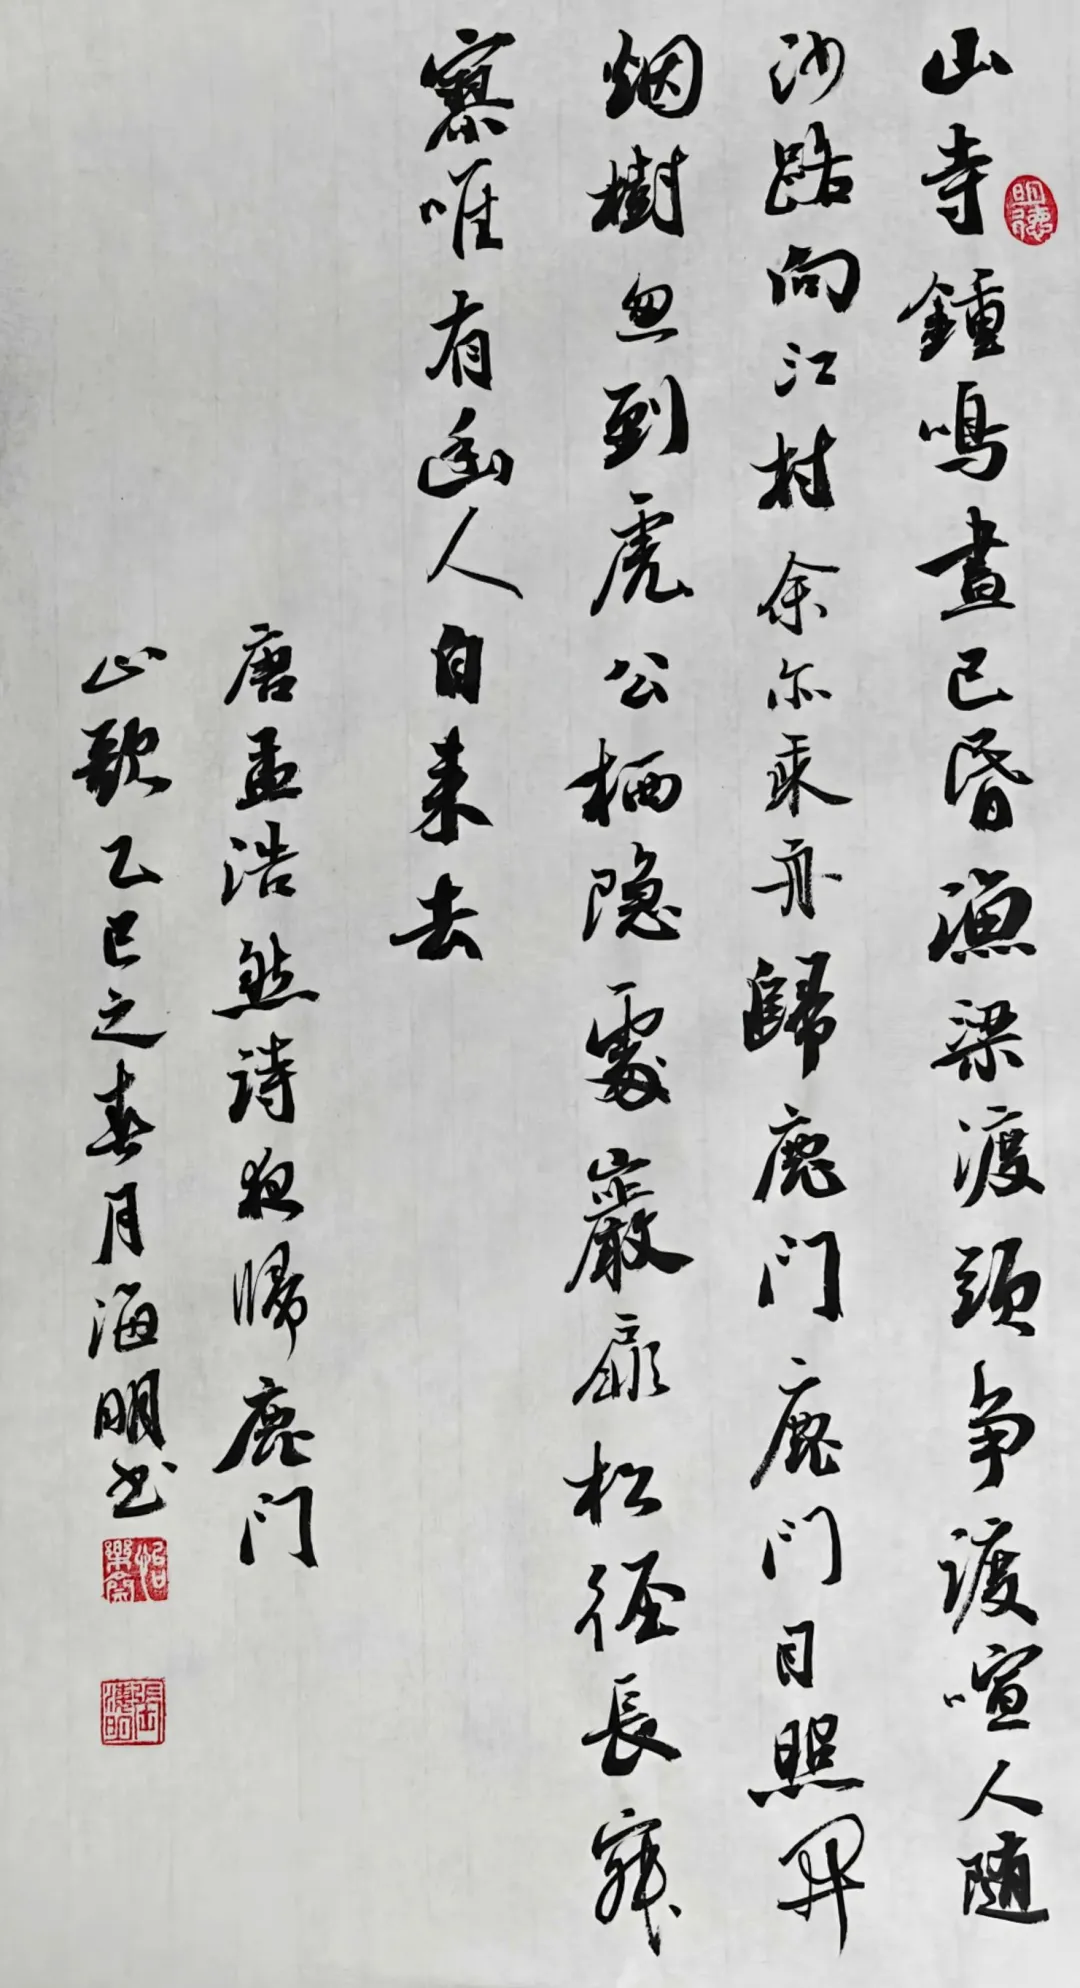 山寺鍾鳴晝已昏漁梁渡頭争渡喧人随
沙路向江村余亦乘舟歸鹿门鹿门月照開
烟樹忽到龐公栖隐處巖扉松径長寂
寥唯有幽人自来去
唐孟浩然詩夜歸鹿门
山歌乙巳之春月海明书